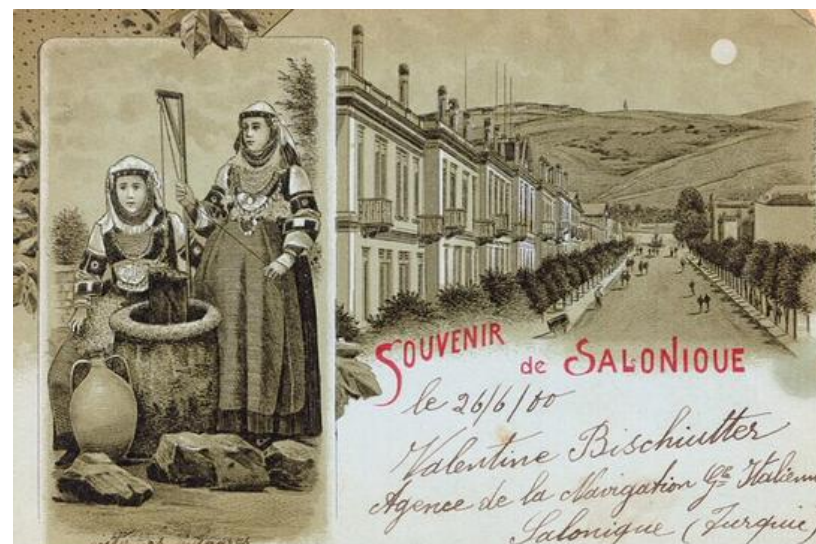 SOUVENIR
de SALONIQUE
le 26/6/00
Valentine Bischiutter
Agence de la Navigation Gle Italienn
Salonique (Turquie)